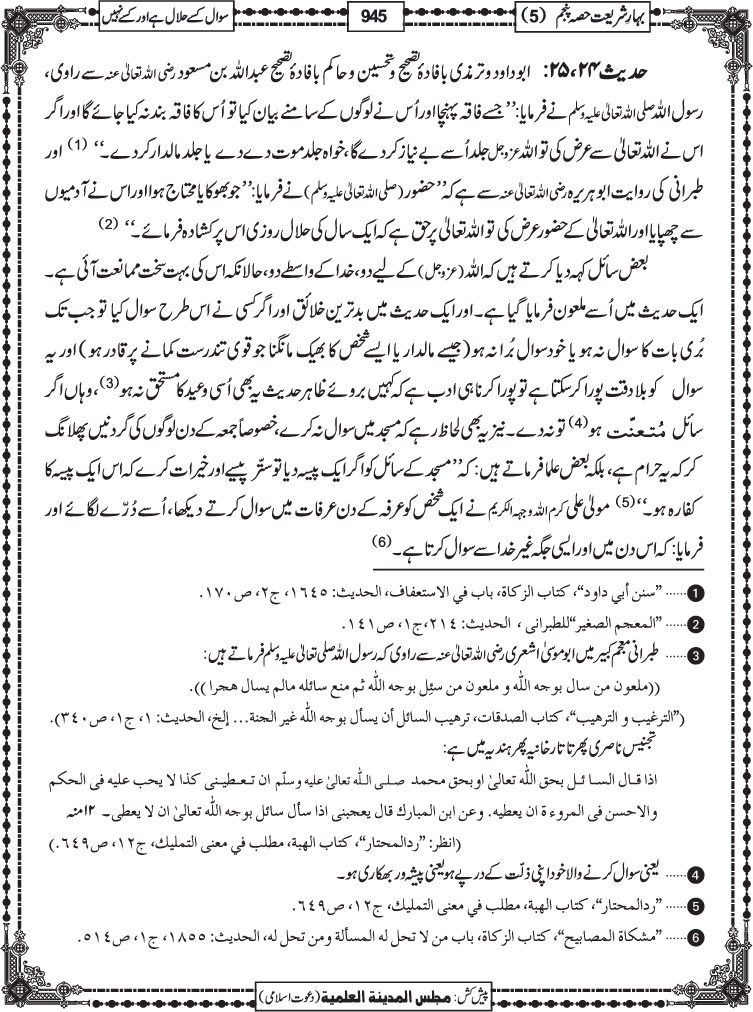 بہارِ شریعت حصہ پنجم (5)
945
سوال کسے حلال ہے اور کسے نہیں
حدیث ۲۴، ۲۵: ابو داود و ترمذی بافادۂ تصحیح و تحسین و حاکم بافادۂ تصحیح عبداللہ بن مسعود رضی اللہ تعالیٰ عنہ سے راوی،
رسول اللہ صلی اللہ تعالیٰ علیہ وسلم نے فرمایا: ’’جسے فاقہ پہنچا اور اُس نے لوگوں کے سامنے بیان کیا تو اُس کا فاقہ بند نہ کیا جائے گا اور اگر
اس نے اللہ تعالیٰ سے عرض کی تو اللہ عزوجل جلد اُسے بے نیاز کر دے گا، خواہ جلد موت دے دے یا جلد مالدار کر دے۔‘‘ (1) اور
طبرانی کی روایت ابوہریرہ رضی اللہ تعالیٰ عنہ سے ہے کہ ’’حضور (صلی اللہ تعالیٰ علیہ وسلم) نے فرمایا: ’’جو بھوکا یا محتاج ہوا اور اس نے آدمیوں
سے چھپایا اور اللہ تعالیٰ کے حضور عرض کی تو اللہ تعالیٰ پر حق ہے کہ ایک سال کی حلال روزی اس پر کشادہ فرمائے۔‘‘ (2)
بعض سائل کہہ دیا کرتے ہیں کہ اللہ (عزوجل) کے لیے دو، خدا کے واسطے دو، حالانکہ اس کی بہت سخت ممانعت آئی ہے۔
ایک حدیث میں اُسے ملعون فرمایا گیا ہے۔ اور ایک حدیث میں بدترین خلائق اور اگر کسی نے اس طرح سوال کیا تو جب تک
بُری بات کا سوال نہ ہو یا خود سوال بُرا نہ ہو (جیسے مالدار یا ایسے شخص کا بھیک مانگنا جو قوی تندرست کمانے پر قادر ہو) اور یہ
سوال کو بلا دقت پورا کر سکتا ہے تو پورا کرنا ہی ادب ہے کہ کہیں بروئے ظاہر حدیث یہ بھی اُسی وعید کا مستحق نہ ہو (3)، وہاں اگر
سائل مُتعنّت ہو (4) تو نہ دے۔ نیز یہ بھی لحاظ رہے کہ مسجد میں سوال نہ کرے، خصوصاً جمعہ کے دن لوگوں کی گردنیں پھلانگ
کر کہ یہ حرام ہے، بلکہ بعض علما فرماتے ہیں: کہ ’’مسجد کے سائل کو اگر ایک پیسہ دیا تو ستّر پیسے اور خیرات کرے کہ اس ایک پیسہ کا
کفارہ ہو۔‘‘ (5) مولیٰ علی کرم اللہ وجہہ الکریم نے ایک شخص کو عرفہ کے دن عرفات میں سوال کرتے دیکھا، اُسے دُرّے لگائے اور
فرمایا: کہ اس دن میں اور ایسی جگہ غیر خدا سے سوال کرتا ہے۔ (6)
1 ...... ’’سنن أبي داود‘‘، کتاب الزکاۃ، باب في الاستعفاف، الحدیث: ١٦٤٥، ج٢، ص١٧٠.
2 ...... ’’المعجم الصغیر‘‘ للطبرانی، الحدیث: ٢١٤، ج١، ص١٤١.
3 ...... طبرانی معجم کبیر میں ابو موسیٰ اشعری رضی اللہ تعالیٰ عنہ سے راوی کہ رسول اللہ صلی اللہ تعالیٰ علیہ وسلم فرماتے ہیں:
((ملعون من سال بوجه اللّٰه و ملعون من سئِل بوجه اللّٰه ثم منع سائله مالم یسال هجرا)).
(’’الترغیب و الترهیب‘‘، کتاب الصدقات، ترهیب السائل أن یسأل بوجه اللّٰه غیر الجنة... إلخ، الحدیث: ١، ج١، ص٣٤٠).
تجنیس ناصری پھر تاتارخانیہ پھر ہندیہ میں ہے:
اذا قال السائل بحق اللّٰه تعالیٰ اوبحق محمد صلی اللّٰه تعالیٰ علیه وسلّم ان تعطینی کذا لا یحب علیه فی الحکم
والاحسن فی المروءۃ ان یعطیه. وعن ابن المبارك قال یعجبنی اذا سأل سائل بوجه اللّٰه تعالیٰ ان لا یعطی۔ ۱۲منہ
(انظر: ’’ردالمحتار‘‘، کتاب الهبة، مطلب في معنی التملیك، ج١٢، ص٦٤٩.)
4 ...... یعنی سوال کرنے والا خود اپنی ذلّت کے درپے ہو یعنی پیشہ ور بھکاری ہو۔
5 ...... ’’ردالمحتار‘‘، کتاب الهبة، مطلب في معنی التملیك، ج١٢، ص٦٤٩.
6 ...... ’’مشکاۃ المصابیح‘‘، کتاب الزکاۃ، باب من لا تحل له المسألة ومن تحل له، الحدیث: ١٨٥٥، ج١، ص٥١٤.
پیش کش: مجلس المدینة العلمیة (دعوت اسلامی)